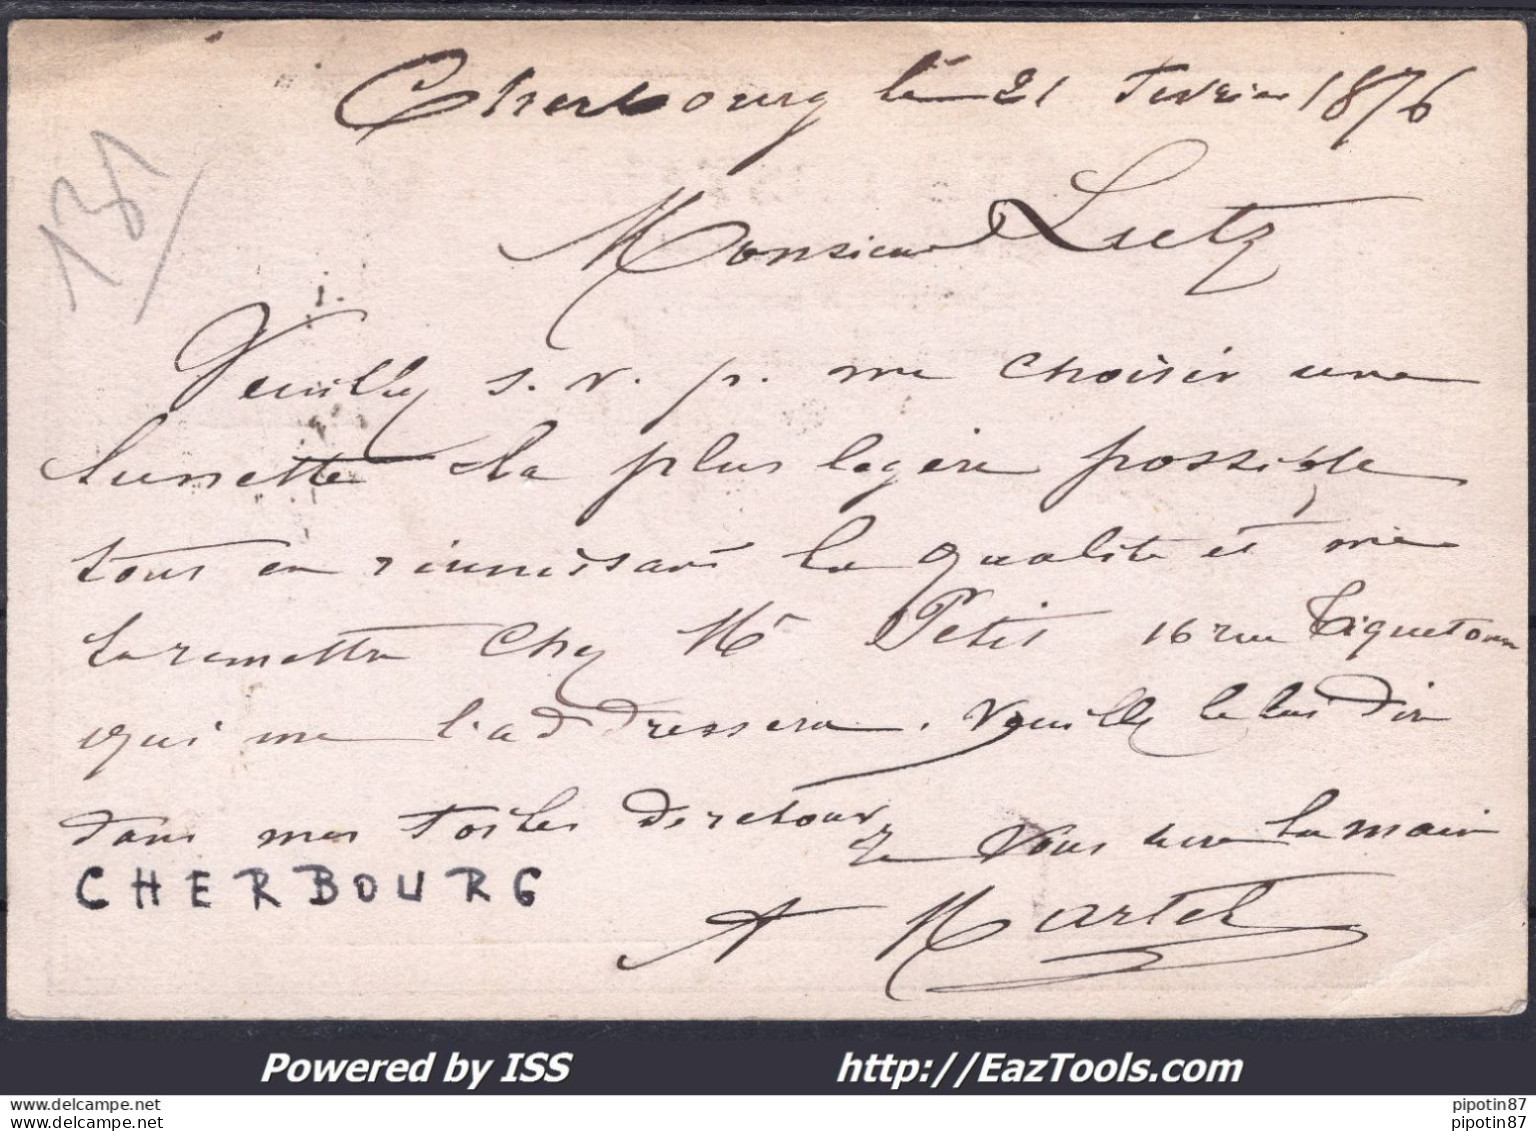 Cherbourg le 21 Fevrier 1876
Monsieur Lutz
Veuillez s. v. p. me choisir une
lunette la plus legère possible
tout en réunissant la qualité et me
la remettre chez Mr Petit 16 rue Tiquetonne
qui me l'addressera. Veuillez le lui dire
dans mes toiles de retour
Je vous serre la main
CHERBOURG
A Martel
Powered by ISS http://EazTools.com
pipotin87 pipotin87
pipotin87 pipotin87